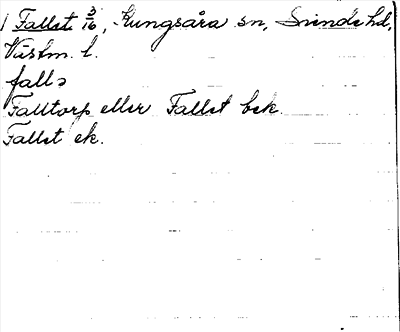 Fallet 3/16, Kungsåra sn, Siende hd,
Västm. l.
falla
Falltorp eller Fallet bek.
Fallet ek.